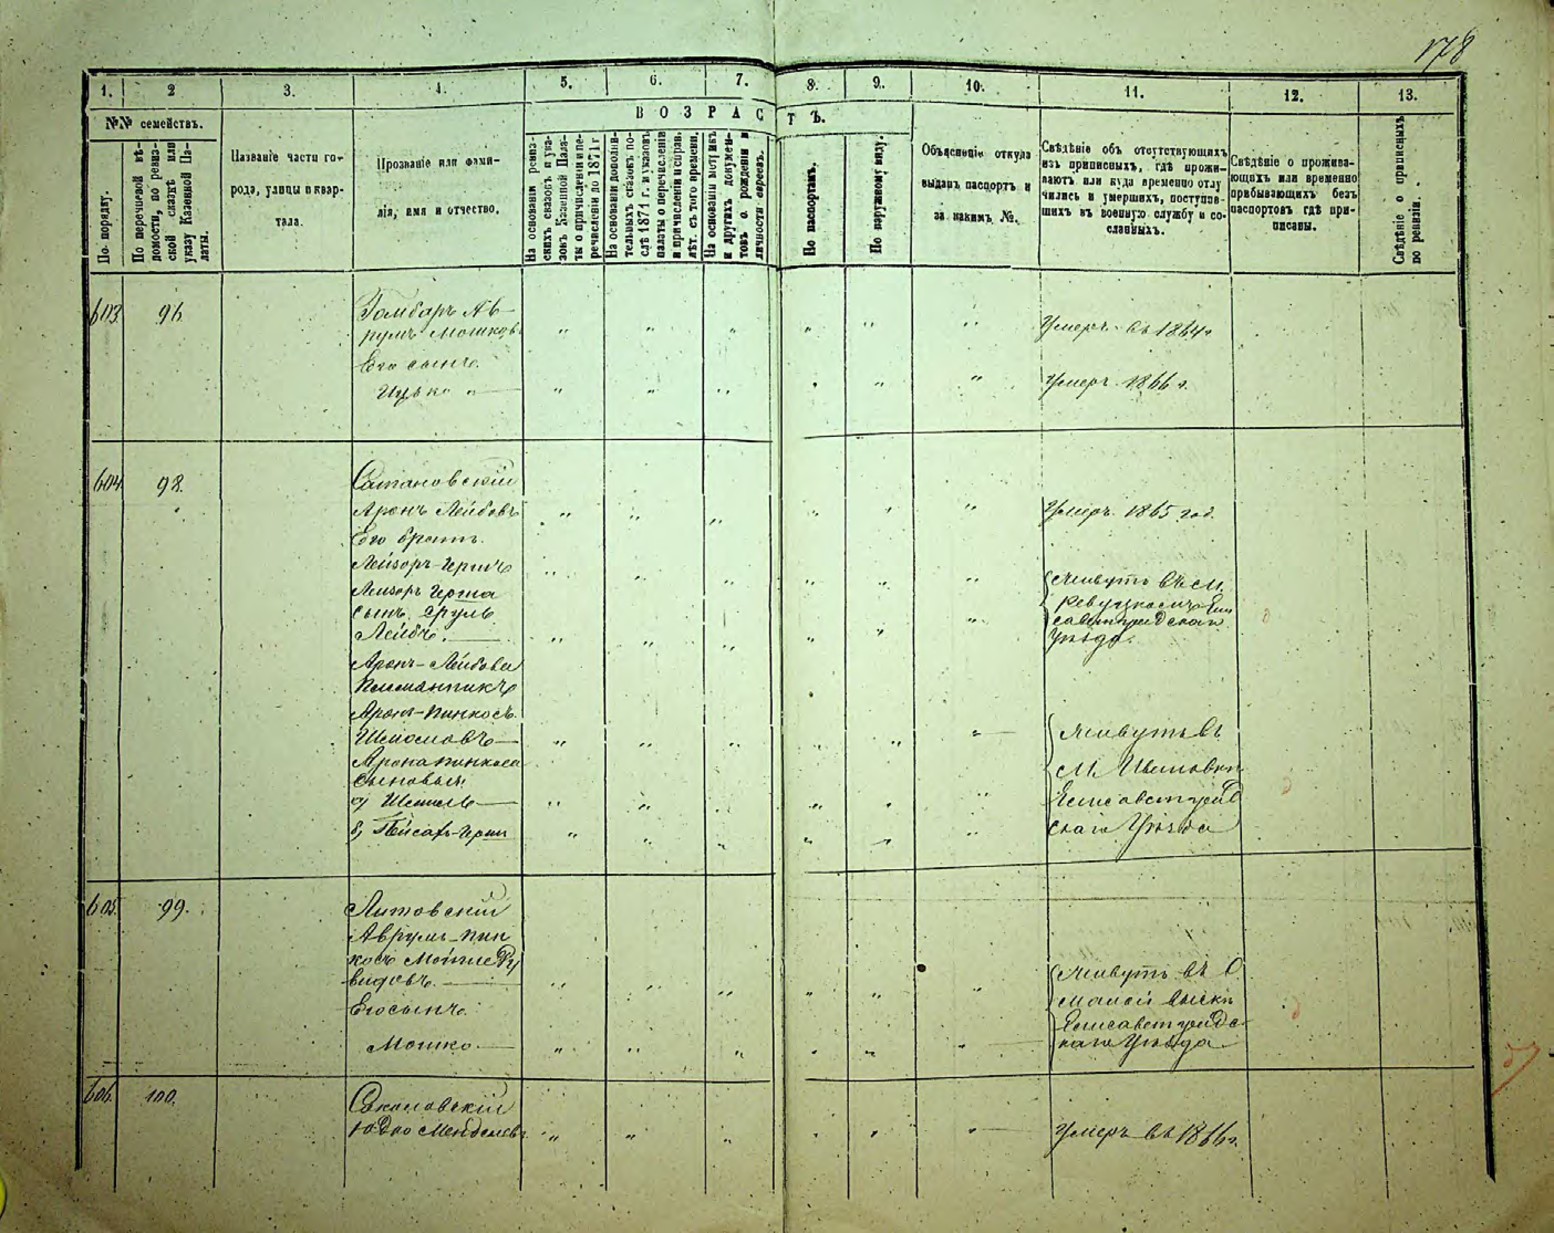 178
1.
2
3.
4.
5.
6.
7.
8.
9.
10.
11.
12.
13.
№№ семействъ.
По порядку.
По перечневой вѣ-
домости, по ревиз-
ской сказкѣ или
указу Казенной Па-
латы.
Названіе части го-
рода, улицы и квар-
тала.
Прозваніе или фами-
лія, имя и отчество.
ВОЗРАСТЪ.
На основаніи ревиз-
скихъ сказокъ и ука-
зовъ Казенной Пала-
ты о причисленіи и пе-
речисленіи до 1871 г
На основаніи дополни-
тельныхъ сказокъ по-
слѣ 1871 г. и указовъ
палаты о перечисленіи
и причисленіи и справ.
лѣт. съ того времени.
На основаніи метрикъ
и другихъ докумен-
товъ о рожденіи и
личности евреевъ.
По паспортамъ.
По наружному виду.
Объясненіе откуда
выданъ паспортъ и
за какимъ №.
Свѣдѣніе объ отсутствующихъ
изъ приписныхъ, гдѣ прожи-
ваютъ или куда временно отлу
чились и умершихъ, поступив-
шихъ въ военную службу и со-
сланныхъ.
Свѣдѣніе о прожива-
ющихъ или временно
прибывающихъ безъ
паспортовъ гдѣ при-
писаны.
Свѣдѣніе о приписныхъ
по ревизіи.
603 96 Гомбаръ Ав-
румъ Мошковъ Умеръ въ 1864 г
Его сынъ.
Ицько Умеръ 1866 г.
604 98. Сатановскій
Аронъ Лейбовъ Умеръ 1865 год.
Его братъ.
Лейзоръ-Гершъ Живутъ въ м.
Лейзоръ Герша
сынъ Сруль
Лейбъ. уѣзда.
Аронъ-Лейбова
племянникъ
Аронъ-Пинкосъ
Шмослевъ Живутъ въ
Арона Пинкоса м.
сыновья:
а) Шмиль Елисаветград
б) Пейсахъ-Герш скаго Уѣзда
605. 99. Литовскій
Аврумъ-Пин
косъ Мошке Ду
видовъ. Живутъ въ
Его сынъ: малой Выски
Елисаветградс-
Мошко. каго Уѣзда
606. 100. Соколовскій
Юдко Менделевъ Умеръ въ 1866 г.